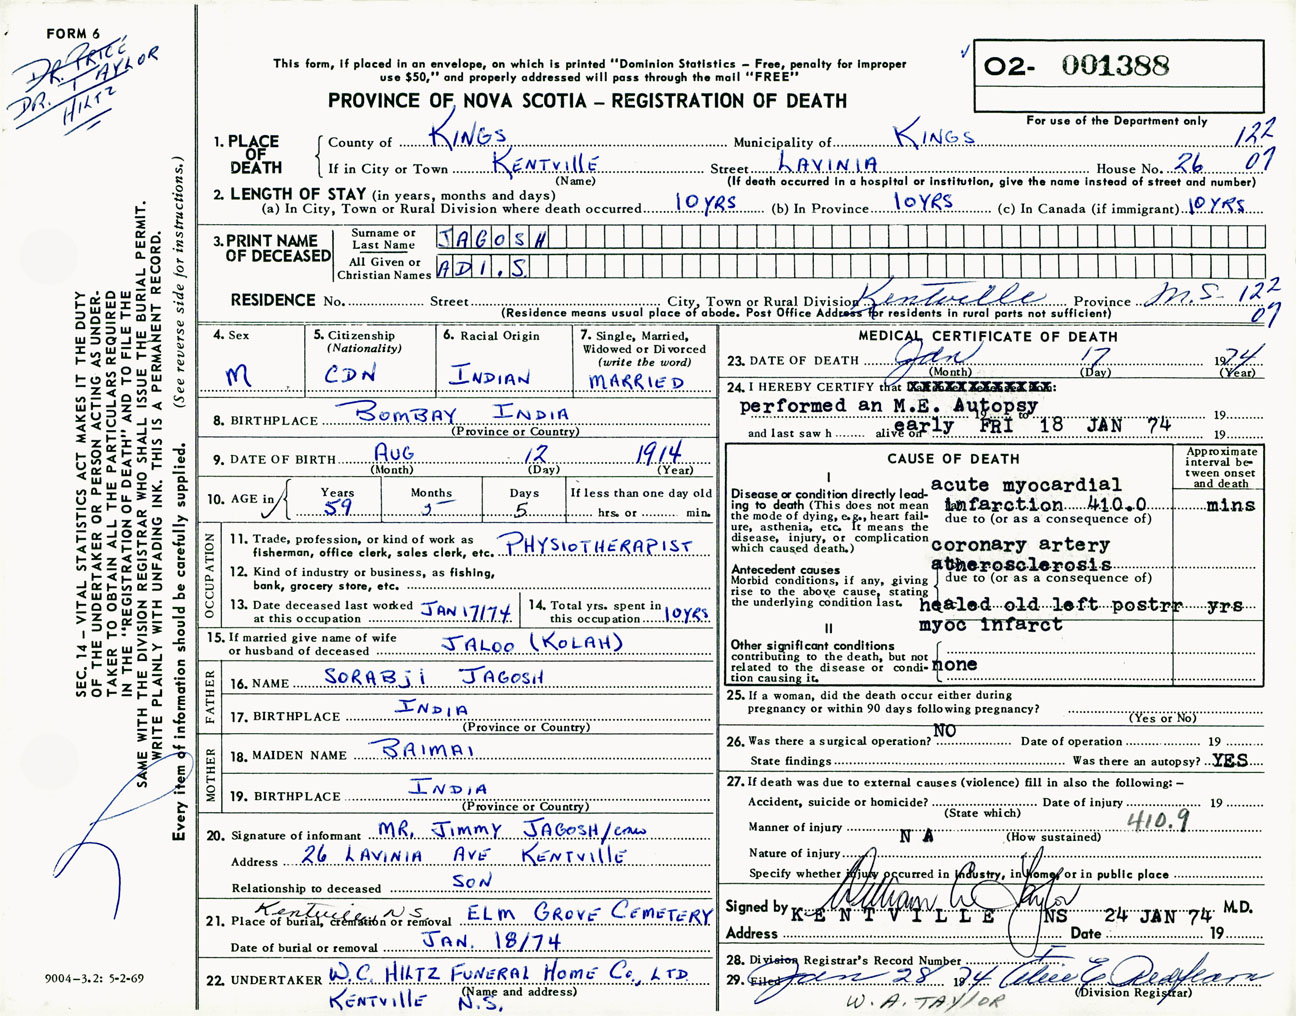 FORM 6
DR. PRICE
DR. TAYLOR
HILTZ
This form, if placed in an envelope, on which is printed "Dominion Statistics – Free, penalty for improper
use $50," and properly addressed will pass through the mail "FREE"
PROVINCE OF NOVA SCOTIA – REGISTRATION OF DEATH
02- 001388
For use of the Department only
1. PLACE OF DEATH
County of KINGS Municipality of KINGS 122
If in City or Town KENTVILLE Street LAVINIA House No. 26 07
(Name) (If death occurred in a hospital or institution, give the name instead of street and number)
2. LENGTH OF STAY (in years, months and days)
(a) In City, Town or Rural Division where death occurred 10 YRS (b) In Province 10 YRS (c) In Canada (if immigrant) 10 YRS
3. PRINT NAME OF DECEASED
Surname or Last Name JAGOSH
All Given or Christian Names ADI. S
RESIDENCE No. Street City, Town or Rural Division Kentville Province N.S- 122
(Residence means usual place of abode. Post Office Address for residents in rural parts not sufficient) 07
4. Sex M
5. Citizenship (Nationality) CDN
6. Racial Origin INDIAN
7. Single, Married, Widowed or Divorced (write the word) MARRIED
8. BIRTHPLACE BOMBAY INDIA
(Province or Country)
9. DATE OF BIRTH AUG 12 1914
(Month) (Day) (Year)
10. AGE in Years 59 Months 5 Days 5 If less than one day old hrs. or min.
OCCUPATION
11. Trade, profession, or kind of work as fisherman, office clerk, sales clerk, etc. PHYSIOTHERAPIST
12. Kind of industry or business, as fishing, bank, grocery store, etc.
13. Date deceased last worked at this occupation JAN 17/74
14. Total yrs. spent in this occupation 10 YRS
15. If married give name of wife or husband of deceased JALOO (KOLAH)
FATHER
16. NAME SORABJI JAGOSH
17. BIRTHPLACE INDIA
(Province or Country)
MOTHER
18. MAIDEN NAME BAIMAI
19. BIRTHPLACE INDIA
(Province or Country)
20. Signature of informant MR. JIMMY JAGOSH
Address 26 LAVINIA AVE KENTVILLE
Relationship to deceased SON
Kentville N.S
21. Place of burial, cremation or removal ELM GROVE CEMETERY
Date of burial or removal JAN. 18/74
22. UNDERTAKER W.C. HILTZ FUNERAL HOME CO., LTD
(Name and address)
KENTVILLE N.S.
MEDICAL CERTIFICATE OF DEATH
23. DATE OF DEATH Jan 17 1974
(Month) (Day) (Year)
24. I HEREBY CERTIFY that
performed an M.E. Autopsy 19
early FRI 18 JAN 74
and last saw h alive on 19
CAUSE OF DEATH
Approximate interval between onset and death
I
Disease or condition directly leading to death (This does not mean the mode of dying, e.g., heart failure, asthenia, etc. It means the disease, injury, or complication which caused death.)
acute myocardial
infarction 410.0 mins
due to (or as a consequence of)
coronary artery
atherosclerosis
Antecedent causes
Morbid conditions, if any, giving rise to the above cause, stating the underlying condition last.
due to (or as a consequence of)
healed old left postrr yrs
myoc infarct
II
Other significant conditions
contributing to the death, but not related to the disease or condition causing it.
none
25. If a woman, did the death occur either during pregnancy or within 90 days following pregnancy?
(Yes or No)
26. Was there a surgical operation? NO Date of operation 19
State findings Was there an autopsy? YES
27. If death was due to external causes (violence) fill in also the following: –
Accident, suicide or homicide? Date of injury 19
(State which) 410.9
Manner of injury N A (How sustained)
Nature of injury
Specify whether injury occurred in Industry, in home, or in public place
Signed by William A Taylor M.D.
KENTVILLE NS 24 JAN 74
Address Date 19
28. Division Registrar's Record Number
29. Filed Jan 28 1974
(Division Registrar)
W. A. TAYLOR
SEC. 14 – VITAL STATISTICS ACT MAKES IT THE DUTY
OF THE UNDERTAKER OR PERSON ACTING AS UNDER-
TAKER TO OBTAIN ALL THE PARTICULARS REQUIRED
IN THE "REGISTRATION OF DEATH" AND TO FILE THE
SAME WITH THE DIVISION REGISTRAR WHO SHALL ISSUE THE BURIAL PERMIT.
WRITE PLAINLY WITH UNFADING INK. THIS IS A PERMANENT RECORD.
Every item of information should be carefully supplied. (See reverse side for instructions.)
9004–3.2: 5-2-69